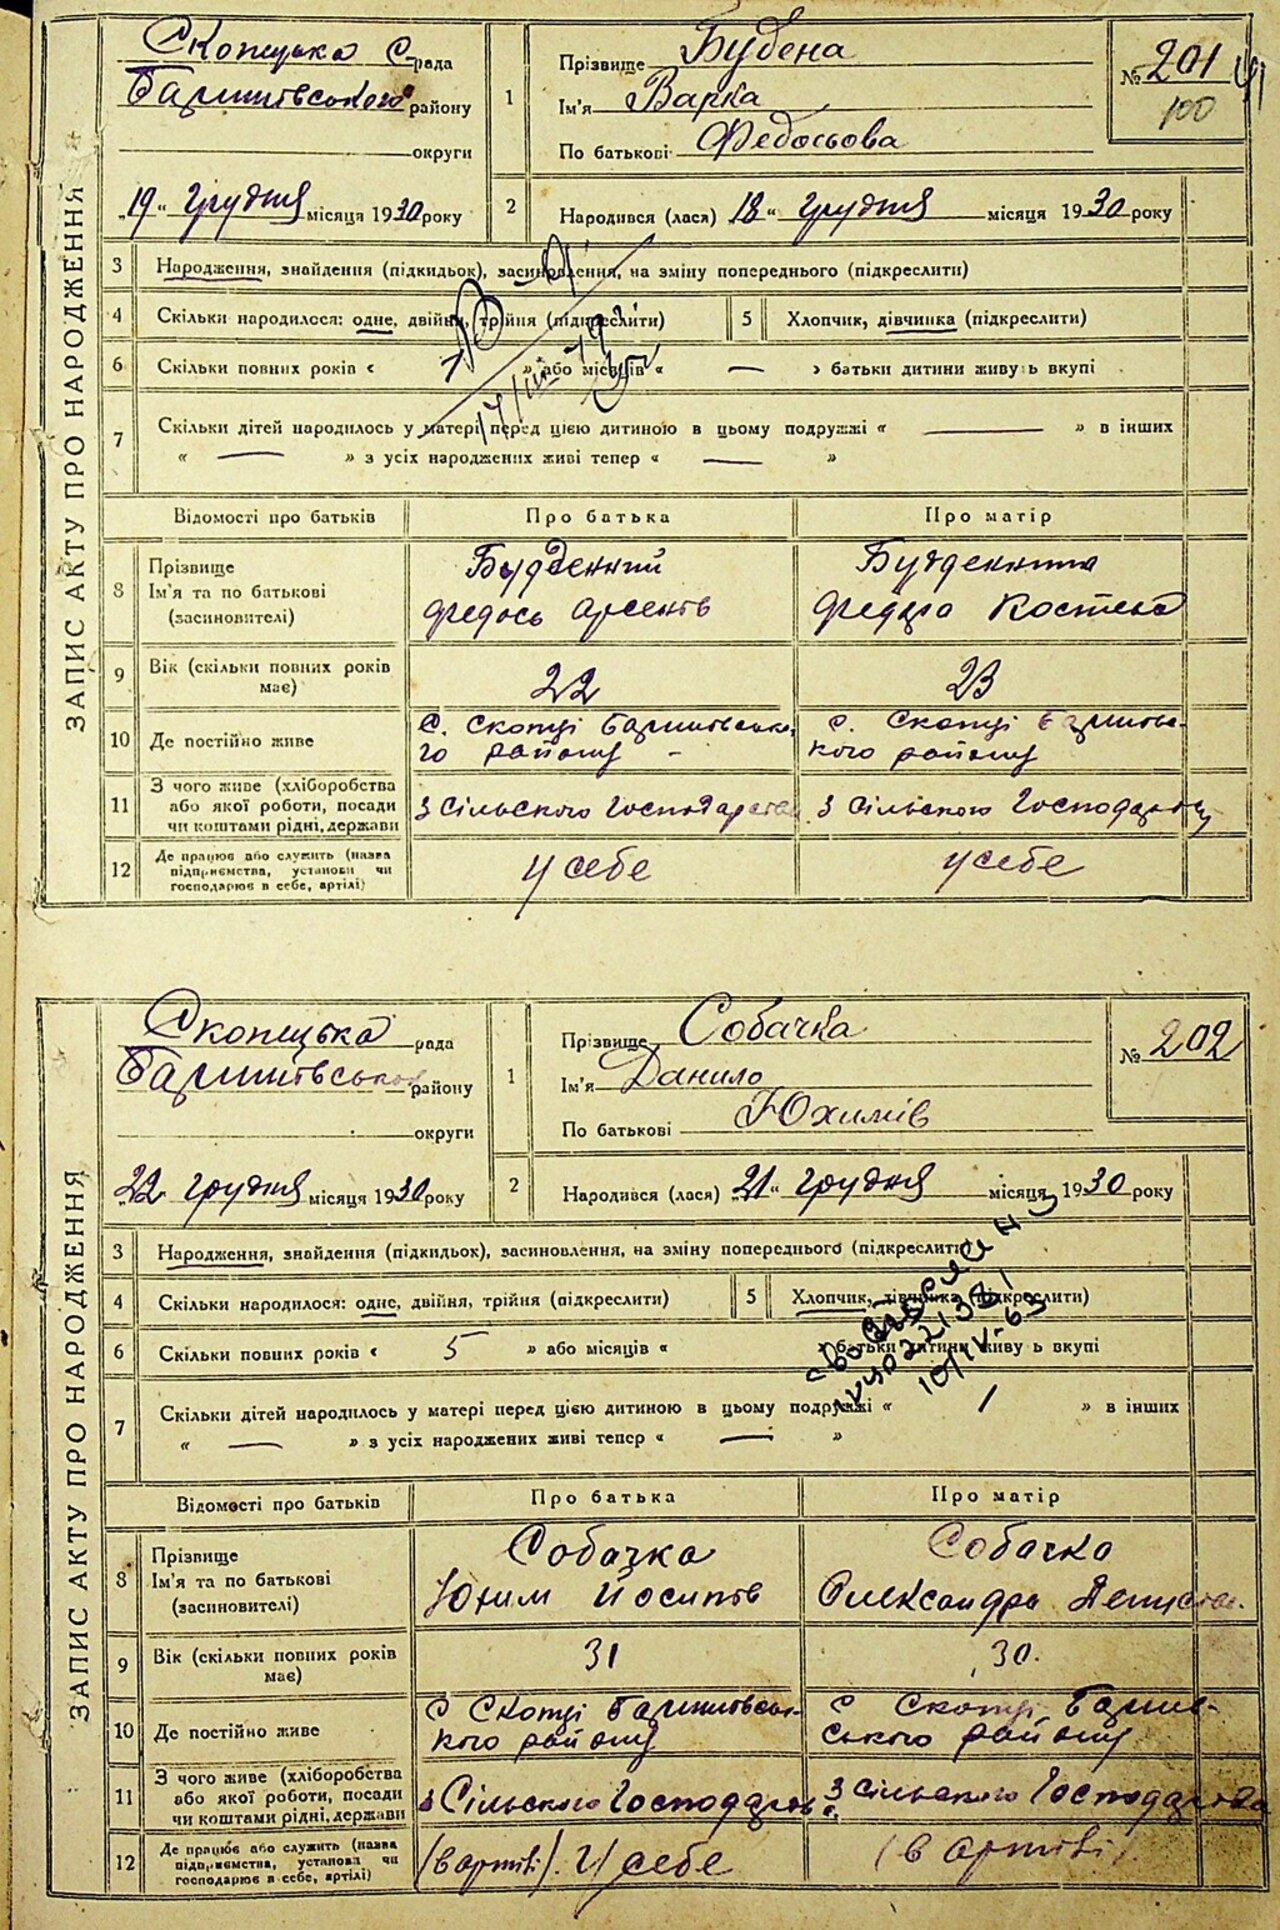 ЗАПИС АКТУ ПРО НАРОДЖЕННЯ
Скопецька С рада
Баришівського району
округи
"19" грудня місяця 1930 року
1
Прізвище Будена
Ім'я Варка
По батькові Федосьова
№ 201
100
2 Народився (лася) 18 " грудня місяця 1930 року
3 Народження, знайдення (підкидьок), засиновлення, на зміну попереднього (підкреслити)
4 Скільки народилося: одне, двійня, трійня (підкреслити) 5 Хлопчик, дівчинка (підкреслити)
6 Скільки повних років « » або місяців « — » батьки дитини живуть вкупі
7 Скільки дітей народилось у матері перед цією дитиною в цьому подружжі « — » в інших
« — » з усіх народжених живі тепер « — »
Відомості про батьків Про батька Про матір
8 Прізвище
Ім'я та по батькові
(засиновителі)
Будденний
Федось Арсентів
9 Вік (скільки повних років має) 22 23
10 Де постійно живе
с. Скопці Баришівсько-
го району
с. Скопці Баришівсь-
кого району
11 З чого живе (хліборобства
або якої роботи, посади
чи коштами рідні, держави
З Сільського Господарства З Сільського Господарства
12 Де працює або служить (назва
підприємства, установи чи
господарює в себе, артілі)
у себе у себе
ЗАПИС АКТУ ПРО НАРОДЖЕННЯ
Скопецька рада
Баришівського району
округи
"22" грудня місяця 1930 року
1
Прізвище Собачка
Ім'я Данило
По батькові Юхимів
№ 202
2 Народився (лася) "21" грудня місяця 1930 року
3 Народження, знайдення (підкидьок), засиновлення, на зміну попереднього (підкреслити)
4 Скільки народилося: одне, двійня, трійня (підкреслити) 5 Хлопчик, дівчинка (підкреслити)
6 Скільки повних років « 5 » або місяців « » батьки дитини живуть вкупі
10/IV-63
7 Скільки дітей народилось у матері перед цією дитиною в цьому подружжі « 1 » в інших
« — » з усіх народжених живі тепер « — »
Відомості про батьків Про батька Про матір
8 Прізвище
Ім'я та по батькові
(засиновителі)
Собачка
Юхим Йосипів
Собачка
Олександра
9 Вік (скільки повних років має) 31 30.
10 Де постійно живе
с Скопці Баришівсь-
кого району
с Скопці Баришів-
ського району
11 З чого живе (хліборобства
або якої роботи, посади
чи коштами рідні, держави
з Сільського Господарств З Сільського Господарства
12 Де працює або служить (назва
підприємства, установа чи
господарює в себе, артілі)
(в артілі). У себе (в артілі).